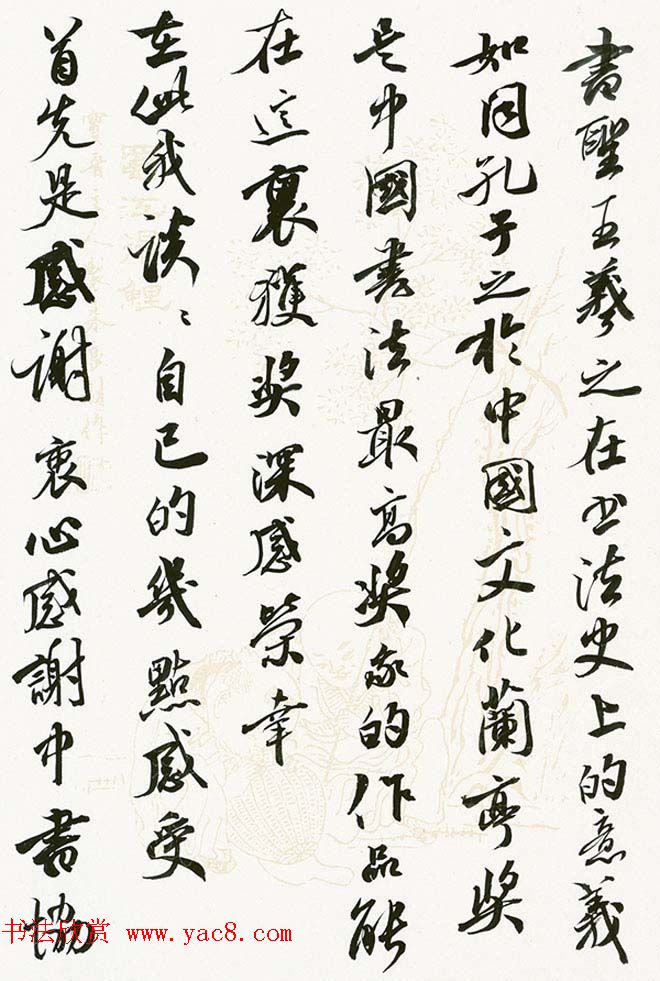 書聖王羲之在书法史上的意義
如同孔子之於中國文化蘭亭奖
是中國書法最高奖我的作品能
在這裏獲奖深感榮幸
在此我談〻自己的幾點感受
首先是感謝衷心感謝中書協
书法欣赏 www.yac8.com